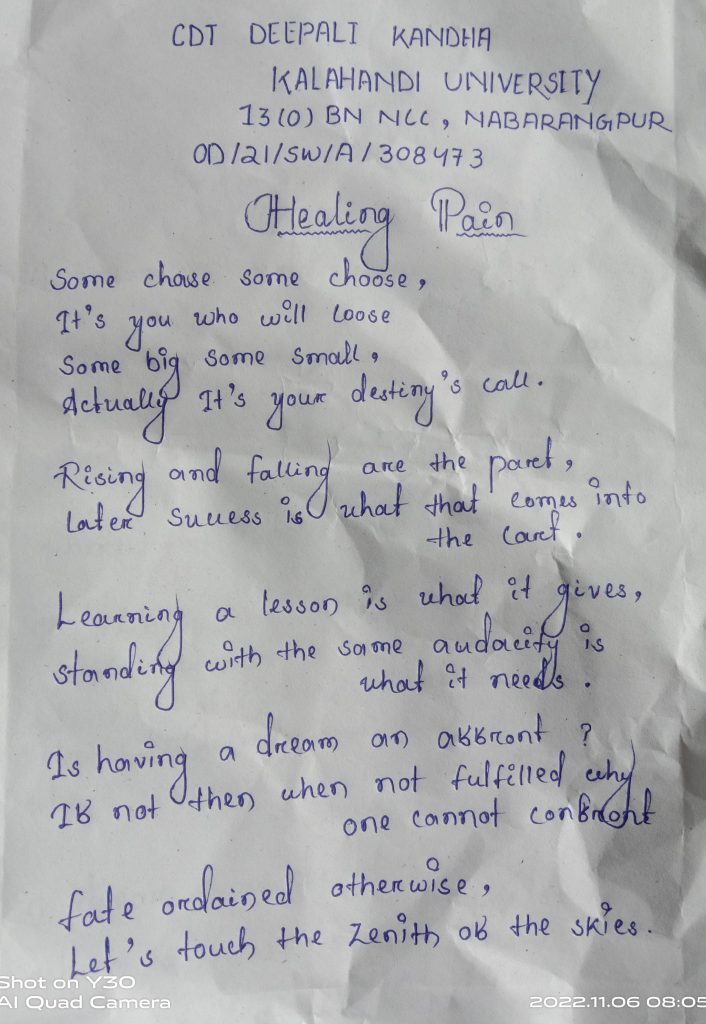 CDT DEEPALI KANDHA
KALAHANDI UNIVERSITY
13(O) BN NCC, NABARANGPUR
OD/21/SW/A/308473
Healing Pain
Some chase some choose,
It's you who will loose
Some big some small,
Actually It's your destiny's call.
Rising and falling are the part,
Later success is what that comes into
the cart.
Learning a lesson is what it gives,
standing with the same audacity is
what it needs.
Is having a dream an affront?
If not then when not fulfilled why
one cannot confront
fate ordained otherwise,
Let's touch the zenith of the skies.
Shot on Y30
AI Quad Camera
2022.11.06 08:05